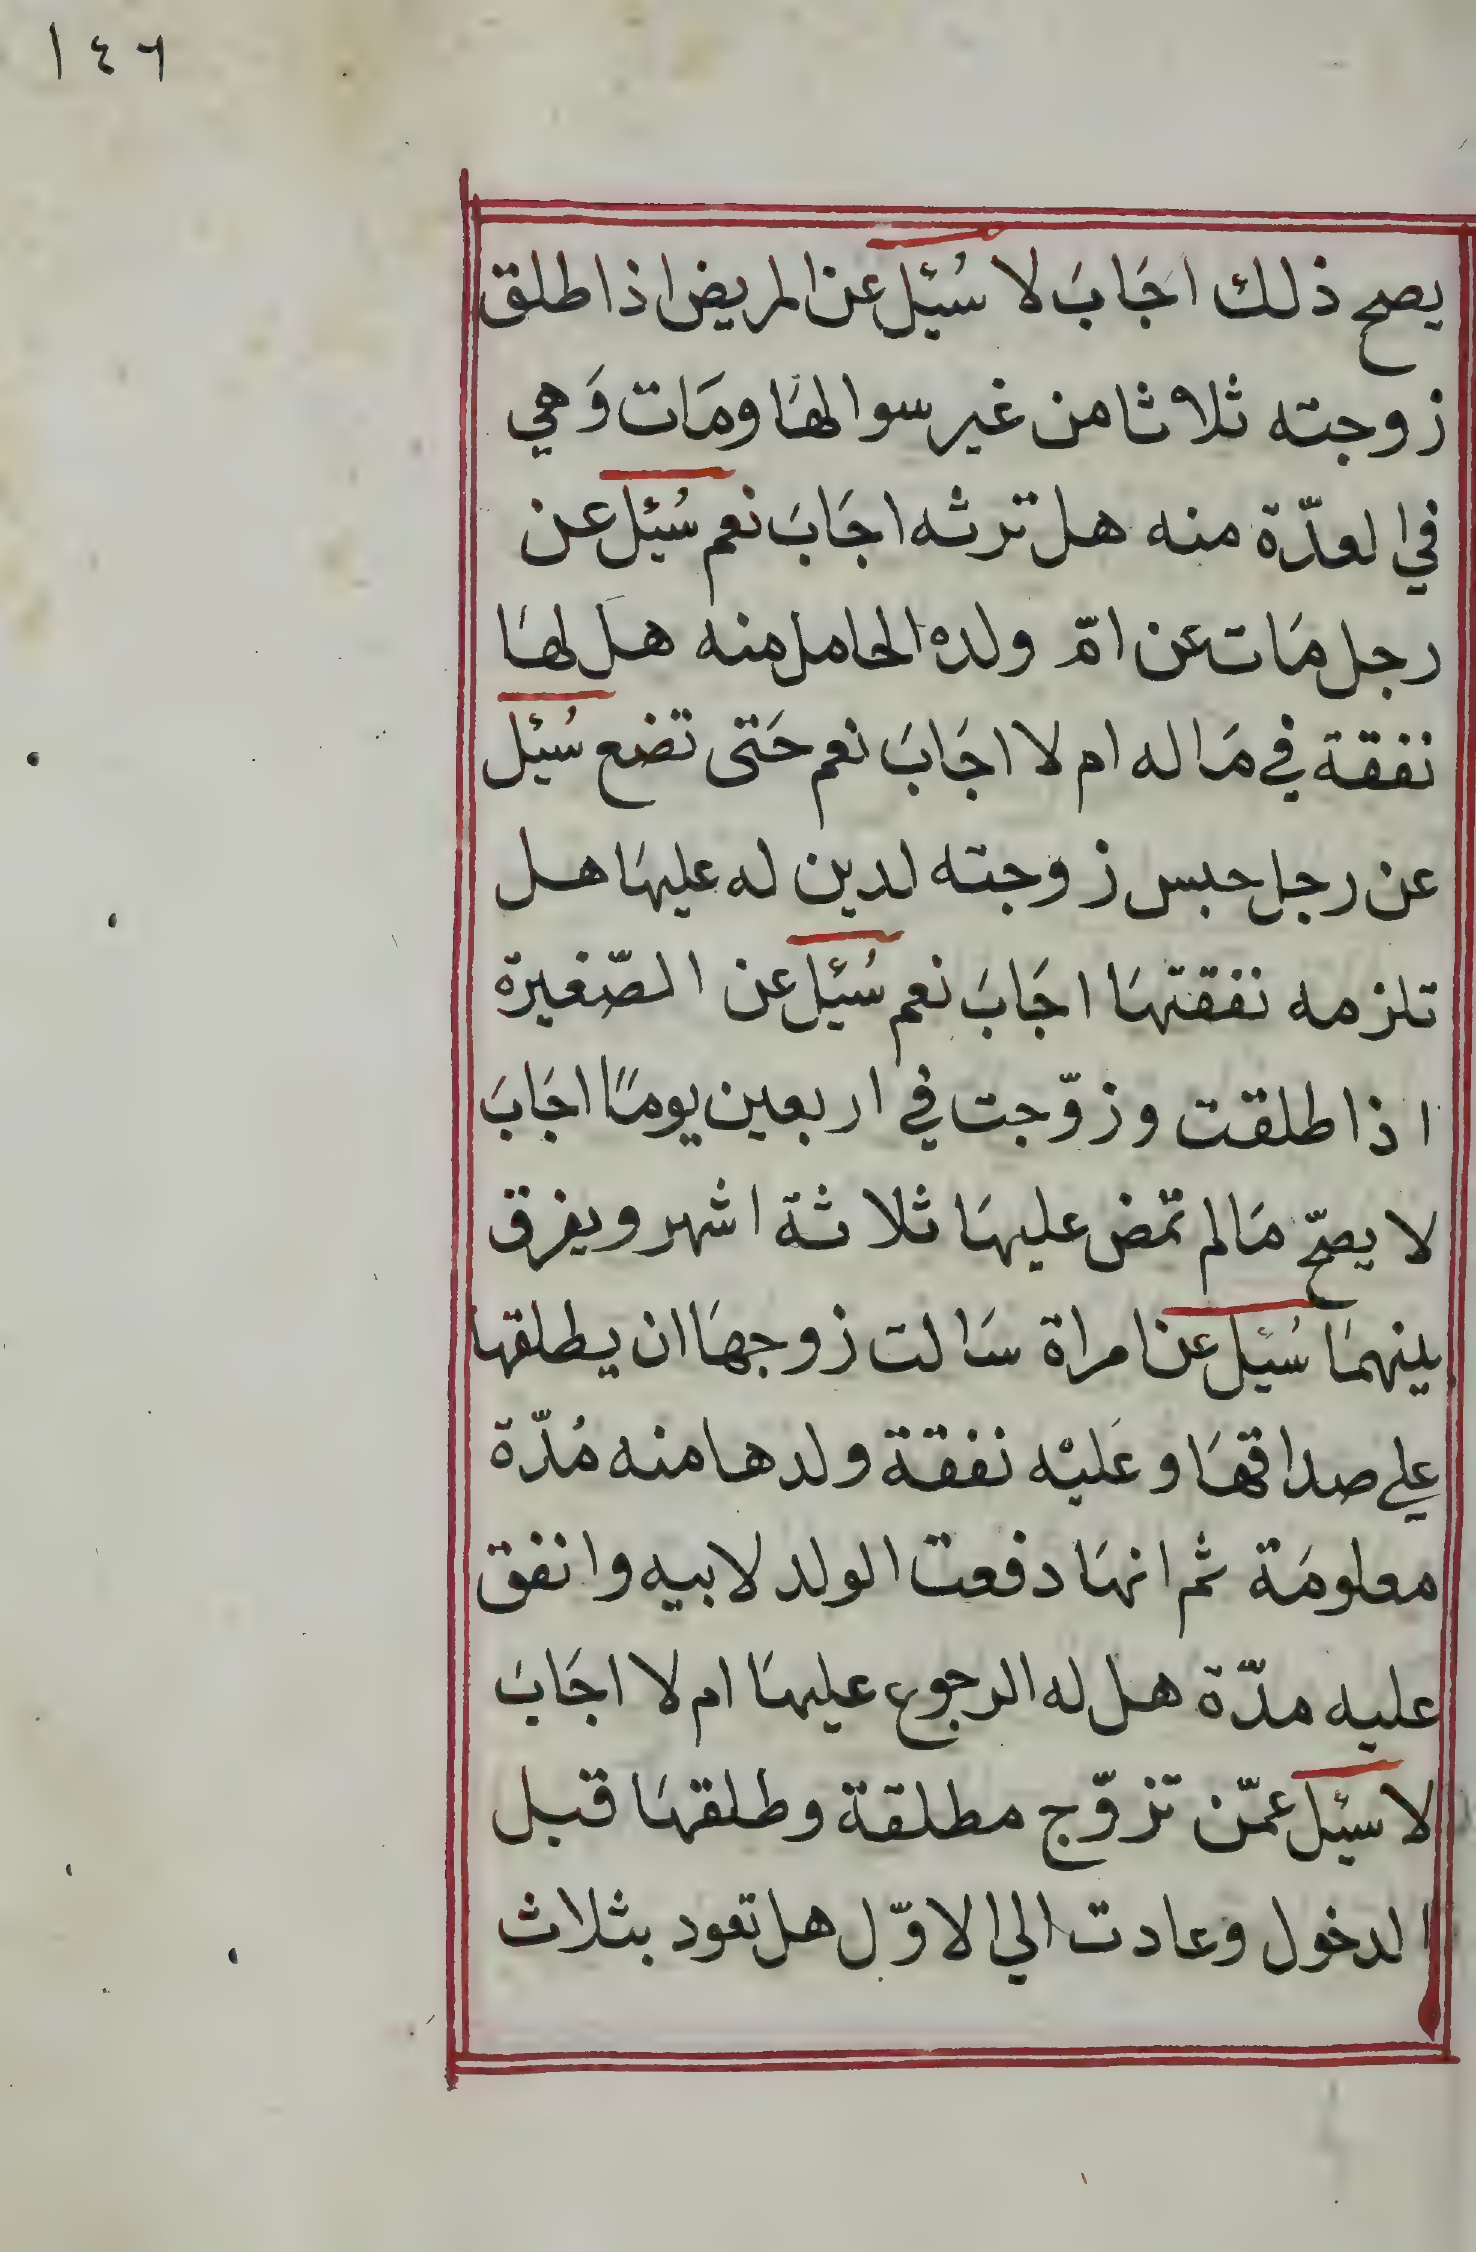 ١٤٦
يصح ذلك اجَابَ لا سُئِل عن المريض اذا طلق
زوجته ثلاثا من غير سوالهَا ومَات وَهي
في العدّة منه هل ترثه اجَابَ نعم سُئِل عن
رجل مَات عن امّ ولده الحامل منه هل لهَا
نفقة في مَاله ام لا اجَابَ نعم حَتى تضع سُئِل
عن رجل حبس زوجته لدين له عليهَا هل
تلزمه نفقتهَا اجَابَ نعم سُئِل عن الصّغيرة
اذا طلقت وزوّجت في اربعين يومًا اجَابَ
لا يصحّ مَالم تمض عليهَا ثلاثة اشهر ويفرق
بينهمَا سُئِل عن امراة سَالت زوجهَا ان يطلقها
علي صداقهَا وعَليْه نفقة ولدها منه مُدّة
معلومَة ثم انهَا دفعت الولد لابيه وانفق
عليه مدّة هل له الرجوع عليهَا ام لا اجَابَ
لا سئِل عمّن تزوّج مطلقة وطلقهَا قبل
الدخول وعادت الي الاوّل هل تعود بثلاث